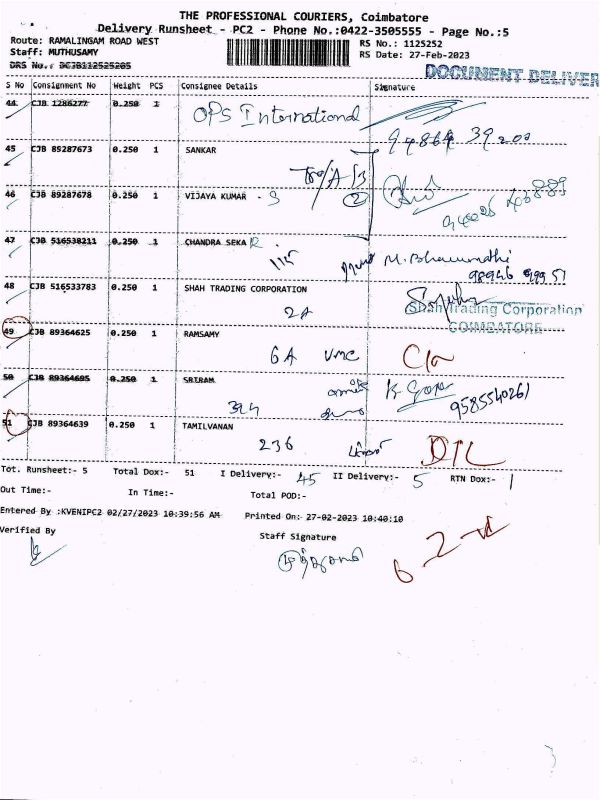 THE PROFESSIONAL COURIERS, Coimbatore
Delivery Runsheet - PC2 - Phone No.:0422-3505555 - Page No.:5
Route: RAMALINGAM ROAD WEST
RS No.: 1125252
Staff: MUTHUSAMY
RS Date: 27-Feb-2023
DRS No.: DCJB112525205
DOCUMENT DELIVER
S No Consignment No Weight PCS Consignee Details Signature
44 CJB 1286277 0.250 1 OPS International
94864 39200
45 CJB 89287673 0.250 1 SANKAR
46 CJB 89287678 0.250 1 VIJAYA KUMAR - S
2
47 CJB 516538211 0.250 1 CHANDRA SEKAR
115 M. Bhanumathi
98946 99951
48 CJB 516533783 0.250 1 SHAH TRADING CORPORATION
2A
Shah Trading Corporation
COIMBATORE
49 CJB 89364625 0.250 1 RAMSAMY
6A VMC
50 CJB 89364695 0.250 1 SRIRAM
394
9585540261
51 CJB 89364639 0.250 1 TAMILVANAN
236 DTL
Tot. Runsheet:- 5 Total Dox:- 51 I Delivery:- 45 II Delivery:- 5 RTN Dox:- 1
Out Time:- In Time:- Total POD:-
Entered By :KVENIPC2 02/27/2023 10:39:56 AM Printed On:- 27-02-2023 10:40:10
Verified By
Staff Signature
முத்துசாமி